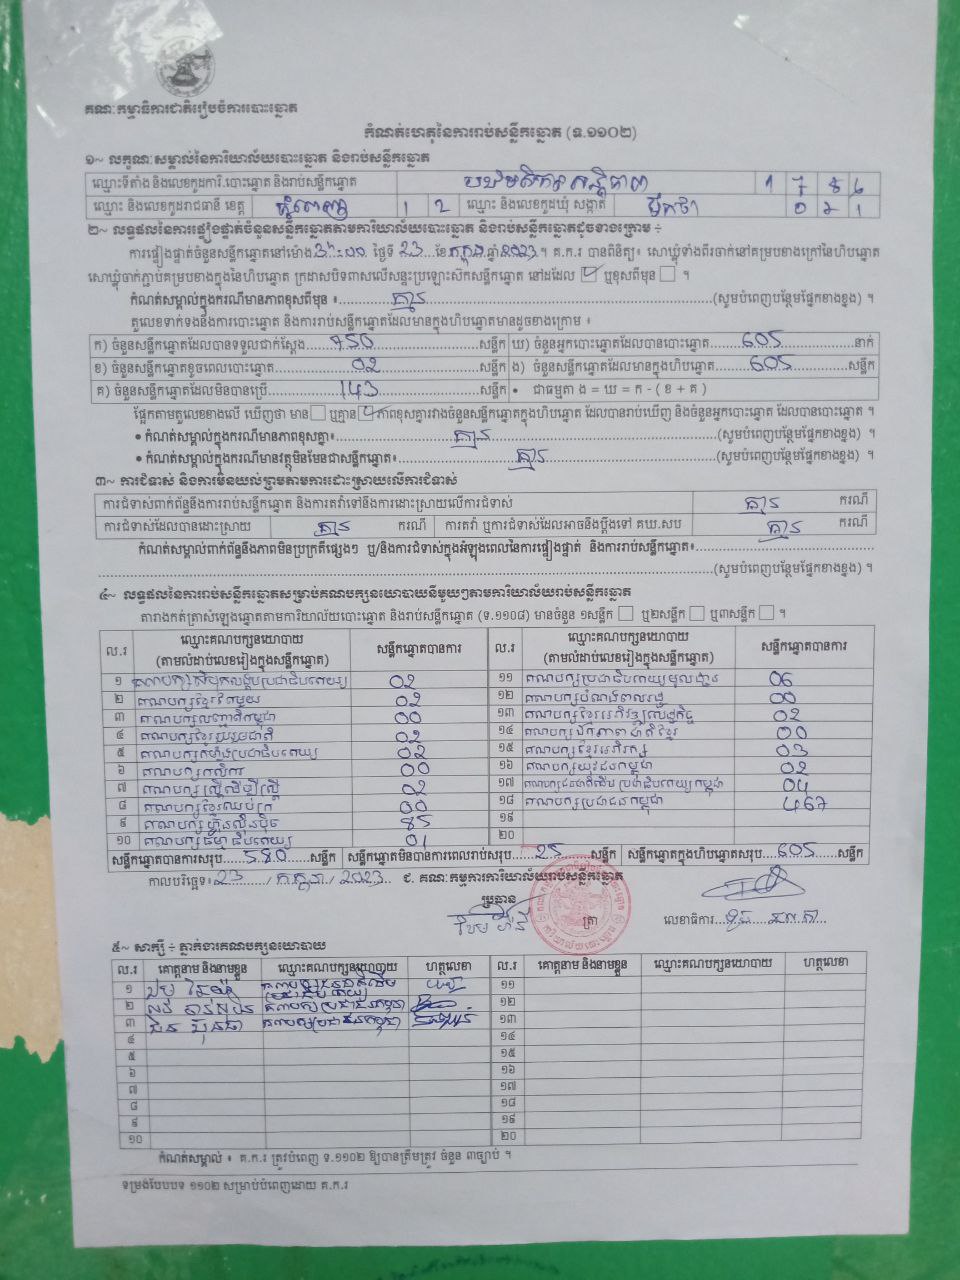 គណៈកម្មាធិការជាតិរៀបចំការបោះឆ្នោត
កំណត់ហេតុនៃការរាប់សន្លឹកឆ្នោត (ទ.១១០២)
១~ លក្ខណៈសម្គាល់នៃការិយាល័យបោះឆ្នោត និងរាប់សន្លឹកឆ្នោត
ឈ្មោះទីតាំង និងលេខកូដការិ.បោះឆ្នោត និងរាប់សន្លឹកឆ្នោត
ឈ្មោះ និងលេខកូដរាជធានី ខេត្ត ភ្នំពេញ 1 2 ឈ្មោះ និងលេខកូដឃុំ សង្កាត់
២~ លទ្ធផលនៃការផ្ទៀងផ្ទាត់ចំនួនសន្លឹកឆ្នោតតាមការិយាល័យបោះឆ្នោត និងរាប់សន្លឹកឆ្នោតដូចខាងក្រោម ÷
ការផ្ទៀងផ្ទាត់ចំនួនសន្លឹកឆ្នោតនៅម៉ោង ថ្ងៃទី 23 ខែ កក្កដា ឆ្នាំ 2023 ។ គ.ក.រ បានពិនិត្យ៖ សោឃ្លុំទាំងពីរចាក់នៅគម្របខាងក្រៅនៃហិបឆ្នោត
សោឃ្លុំចាក់ភ្ជាប់គម្របខាងក្នុងនៃហិបឆ្នោត ក្រដាសបិទពាសលើសន្ទះប្រឡោះស៊កសន្លឹកឆ្នោត នៅដដែល ឬខុសពីមុន ។
កំណត់សម្គាល់ក្នុងករណីមានភាពខុសពីមុន ៖ គ្មាន (សូមបំពេញបន្ថែមផ្នែកខាងខ្នង) ។
តួលេខទាក់ទងនឹងការបោះឆ្នោត និងការរាប់សន្លឹកឆ្នោតដែលមានក្នុងហិបឆ្នោតមានដូចខាងក្រោម ៖
ក) ចំនួនសន្លឹកឆ្នោតដែលបានទទួលជាក់ស្តែង 750 សន្លឹក ឃ) ចំនួនអ្នកបោះឆ្នោតដែលបានបោះឆ្នោត 605 នាក់
ខ) ចំនួនសន្លឹកឆ្នោតខូចពេលបោះឆ្នោត 02 សន្លឹក ង) ចំនួនសន្លឹកឆ្នោតដែលមានក្នុងហិបឆ្នោត 605 សន្លឹក
គ) ចំនួនសន្លឹកឆ្នោតដែលមិនបានប្រើ 143 សន្លឹក • ជាធម្មតា ង = ឃ = ក - ( ខ + គ )
ផ្អែកតាមតួលេខខាងលើ ឃើញថា មាន ឬគ្មាន ភាពខុសគ្នារវាងចំនួនសន្លឹកឆ្នោតក្នុងហិបឆ្នោត ដែលបានរាប់ឃើញ និងចំនួនអ្នកបោះឆ្នោត ដែលបានបោះឆ្នោត ។
• កំណត់សម្គាល់ក្នុងករណីមានភាពខុសគ្នា៖ គ្មាន (សូមបំពេញបន្ថែមផ្នែកខាងខ្នង) ។
• កំណត់សម្គាល់ក្នុងករណីមានវត្ថុមិនមែនជាសន្លឹកឆ្នោត៖ គ្មាន (សូមបំពេញបន្ថែមផ្នែកខាងខ្នង) ។
៣~ ការជំទាស់ និងការមិនយល់ព្រមតាមការដោះស្រាយលើការជំទាស់
ការជំទាស់ពាក់ព័ន្ធនឹងការរាប់សន្លឹកឆ្នោត និងការតវ៉ាទៅនឹងការដោះស្រាយលើការជំទាស់ គ្មាន ករណី
ការជំទាស់ដែលបានដោះស្រាយ គ្មាន ករណី ការតវ៉ា ឬការជំទាស់ដែលអាចនឹងប្តឹងទៅ គឃ.សប គ្មាន ករណី
កំណត់សម្គាល់ពាក់ព័ន្ធនឹងភាពមិនប្រក្រតីផ្សេងៗ ឬ/និងការជំទាស់ក្នុងអំឡុងពេលនៃការផ្ទៀងផ្ទាត់ និងការរាប់សន្លឹកឆ្នោត៖
(សូមបំពេញបន្ថែមផ្នែកខាងខ្នង) ។
៤~ លទ្ធផលនៃការរាប់សន្លឹកឆ្នោតសម្រាប់គណបក្សនយោបាយនីមួយៗតាមការិយាល័យរាប់សន្លឹកឆ្នោត
តារាងកត់ត្រាសំឡេងឆ្នោតតាមការិយាល័យបោះឆ្នោត និងរាប់សន្លឹកឆ្នោត (ទ.១១០៨) មានចំនួន ១សន្លឹក ឬ២សន្លឹក ឬ៣សន្លឹក ។
ល.រ ឈ្មោះគណបក្សនយោបាយ (តាមលំដាប់លេខរៀងក្នុងសន្លឹកឆ្នោត) សន្លឹកឆ្នោតបានការ ល.រ ឈ្មោះគណបក្សនយោបាយ (តាមលំដាប់លេខរៀងក្នុងសន្លឹកឆ្នោត) សន្លឹកឆ្នោតបានការ
១ គណបក្សសំបុកឃ្មុំប្រជាធិបតេយ្យ 02 ១១ គណបក្សប្រជាធិបតេយ្យមូលដ្ឋាន 06
២ គណបក្សខ្មែរតែមួយ 02 ១២ 00
៣ 00 ១៣ គណបក្សខ្មែរអភិវឌ្ឍសេដ្ឋកិច្ច 02
៤ គណបក្សខ្មែររួបរួមជាតិ 02 ១៤ គណបក្សឯកភាពជាតិខ្មែរ 00
៥ គណបក្សកម្លាំងប្រជាធិបតេយ្យ 02 ១៥ គណបក្សខ្មែរអភិរក្ស 03
៦ គណបក្សកសិករ 00 ១៦ គណបក្សយុវជនកម្ពុជា 02
៧ គណបក្សស្ត្រីដើម្បីស្ត្រី 02 ១៧ 04
៨ គណបក្សខ្មែរឈប់ក្រ 00 ១៨ គណបក្សប្រជាជនកម្ពុជា 467
៩ គណបក្សហ្វ៊ុនស៊ិនប៉ិច 85 ១៩
១០ គណបក្សធម្មាធិបតេយ្យ 01 ២០
សន្លឹកឆ្នោតបានការសរុប 580 សន្លឹក សន្លឹកឆ្នោតមិនបានការពេលរាប់សរុប 25 សន្លឹក សន្លឹកឆ្នោតក្នុងហិបឆ្នោតសរុប 605 សន្លឹក
កាលបរិច្ឆេទ៖ 23 / កក្កដា / 2023 ជ. គណៈកម្មការការិយាល័យរាប់សន្លឹកឆ្នោត
ប្រធាន
ត្រា លេខាធិការ
៥~ សាក្សី ÷ ភ្នាក់ងារគណបក្សនយោបាយ
ល.រ គោត្តនាម និងនាមខ្លួន ឈ្មោះគណបក្សនយោបាយ ហត្ថលេខា ល.រ គោត្តនាម និងនាមខ្លួន ឈ្មោះគណបក្សនយោបាយ ហត្ថលេខា
១ ១១
២ គណបក្សប្រជាជនកម្ពុជា ១២
៣ គណបក្សប្រជាជនកម្ពុជា ១៣
៤ ១៤
៥ ១៥
៦ ១៦
៧ ១៧
៨ ១៨
៩ ១៩
១០ ២០
កំណត់សម្គាល់ ៖ គ.ក.រ ត្រូវបំពេញ ទ.១១០២ ឱ្យបានត្រឹមត្រូវ ចំនួន ៣ច្បាប់ ។
ទម្រង់បែបបទ ១១០២ សម្រាប់បំពេញដោយ គ.ក.រ